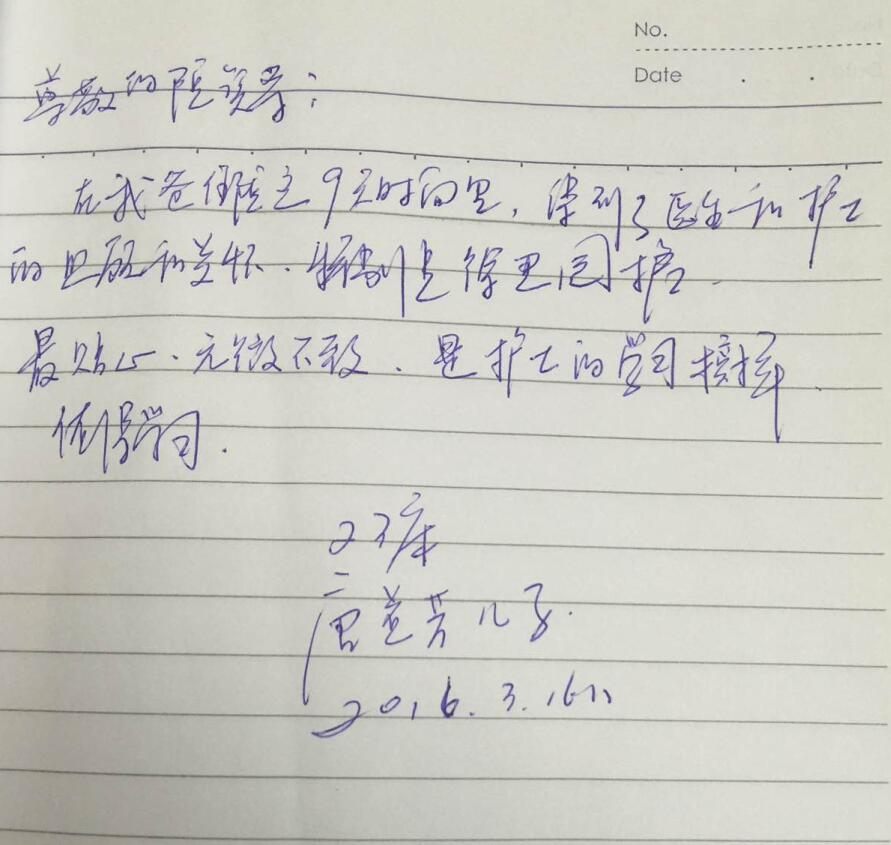 No.
Date . .
尊敬的院领导：
在我爸住院这9天时间里，得到了医生和护士
的照顾和关怀、特别是徐思国护士
最贴心、无微不致、是护士的学习榜样
值得学习.
23床
芳儿子.
2016.3.16日